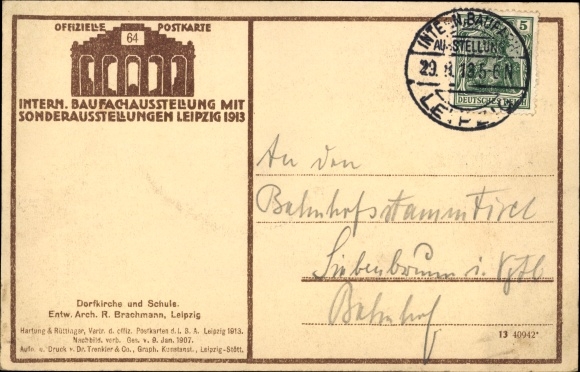 OFFIZIELLE POSTKARTE
64
INTERN. BAUFACHAUSSTELLUNG MIT
SONDERAUSSTELLUNGEN LEIPZIG 1913
INTERN. BAUFACH
AUSSTELLUNG
29.8.13.5-6N
LEIPZIG
5
DEUTSCHES REICH
An den
Bahnhofsstammtisch
Siebenbrunn i. Vgtl
Bahnhof
Dorfkirche und Schule.
Entw. Arch. R. Brachmann, Leipzig
Hartung & Rüttinger, Vertr. d. offiz. Postkarten d. I. B. A. Leipzig 1913.
Nachbild. verb. Ges. v. 9. Jan. 1907.
Aufn. u. Druck v. Dr. Trenkler & Co., Graph. Kunstanst., Leipzig-Stött.
13 40942*